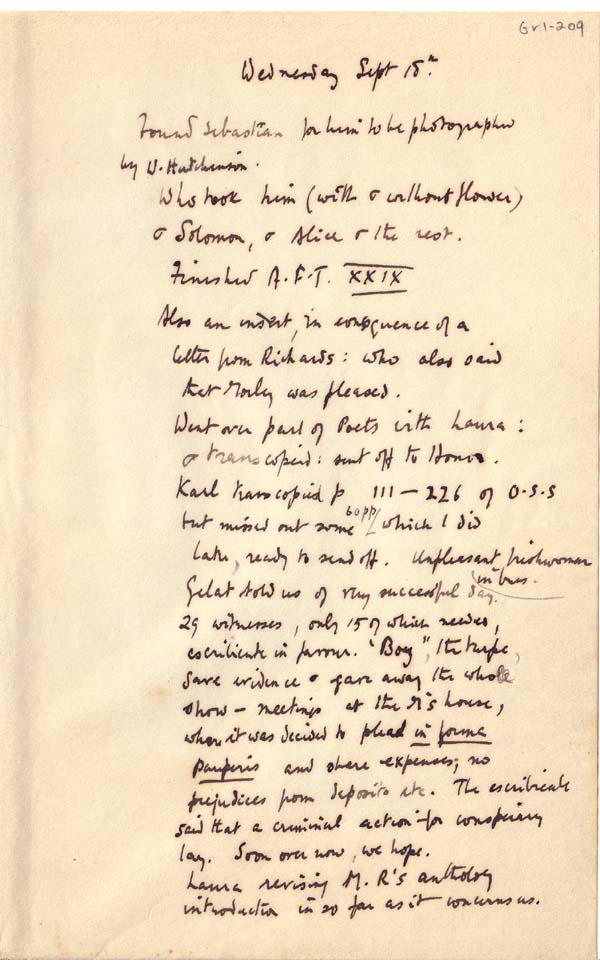 Gr1-209
Wednesday Sept 18th
Found Sebastian for him to be photographed
by W. Hutchinson.
Who took him (with & without flower)
& Solomon, & Alice & the rest.
Finished A.F.T. XXIX
Also an insert, in consequence of a
letter from Richards: who also said
that Morley was pleased.
Went over part of Poets with Laura:
& transcopied: sent off to Honor.
Karl transcopied p 111 – 226 of O.S.S
but missed out some 60 pp/ which I did
late, ready to send off. Unpleasant Irishwoman
in bus.
Gelat told us of very successful day.
29 witnesses, only 15 of which needed,
escribiente in favour. "Boy", the
gave evidence & gave away the whole
show – meetings at the M's house,
where it was decided to plead in forma
Pauperis and share expenses; no
prejudices from deposito etc. The escribiente
said that a criminal action for conspiracy
lay. Soon over now, we hope.
Laura revising M. R's anthology
introduction in so far as it concerns us.